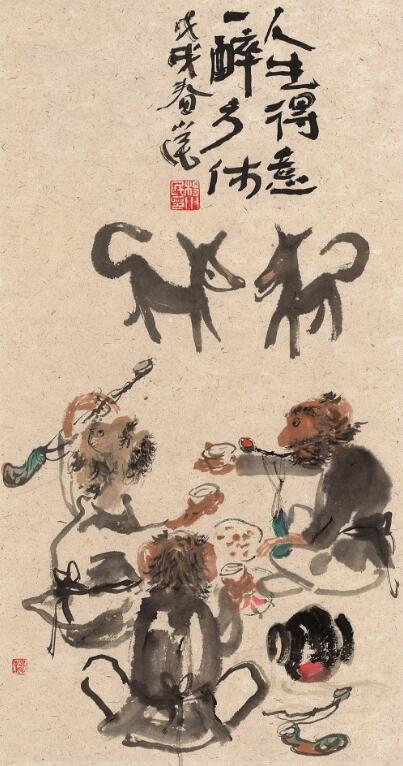 人生得意
一醉方休
戊戌春